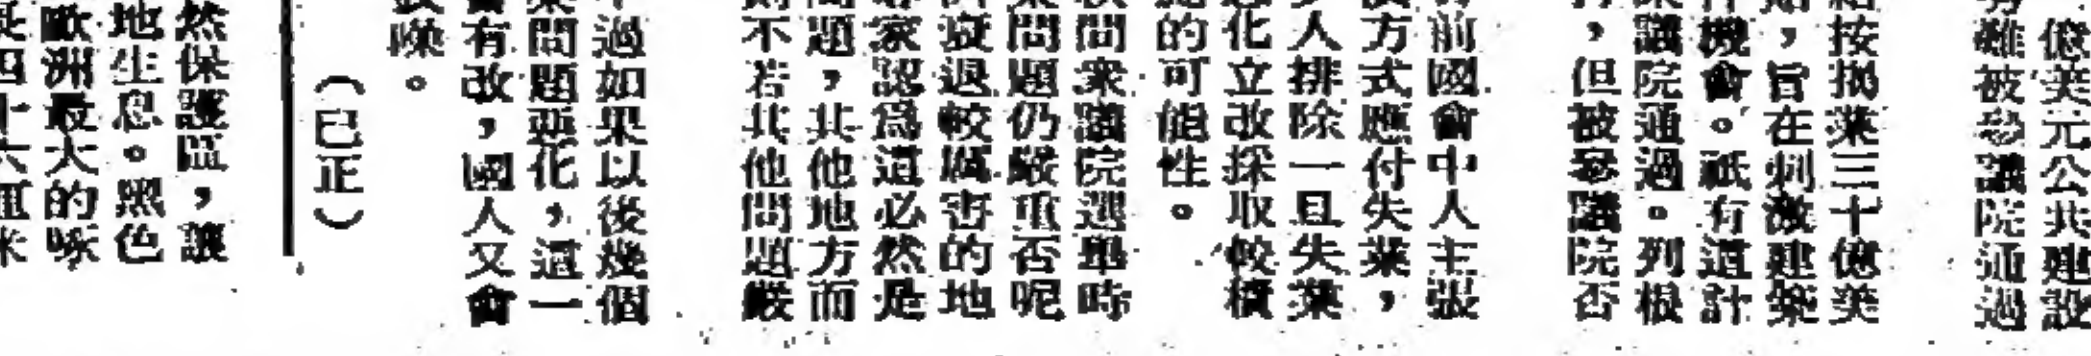 億美元公共建設
勞難被參議院通過
給按揭業三十億美
貼，旨在刺激建築
件機會。祇有這計
衆議院通過。列根
行，但被參議院否
前國會中人主張
方式應付失業，
人排除一旦失業
化立改採取較積
的可能性。
問衆議院選舉時
問題仍嚴重否呢
衰退較厲害的地
家認為這必然是
問題，其他地方而
則不若其他問題嚴
不過如果以後幾個
業問題惡化，這一
會有改，國人又會
叫噪。
（已正）
然保護區，讓
地生息。黑色
歐洲最大的啄
長四十六厘米